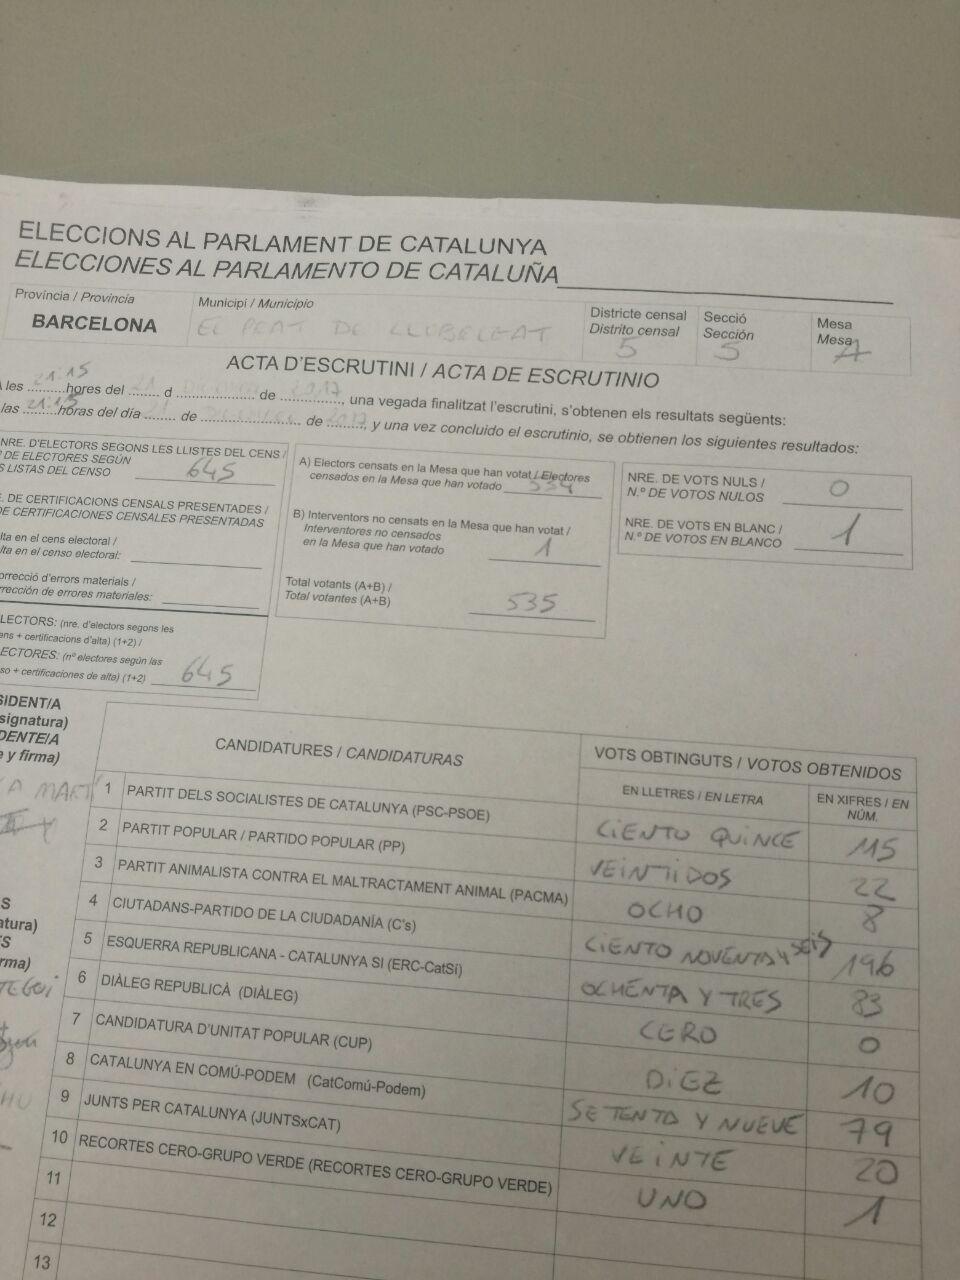 ELECCIONS AL PARLAMENT DE CATALUNYA
ELECCIONES AL PARLAMENTO DE CATALUÑA
Província / Provincia
BARCELONA
Municipi / Municipio
EL PRAT DE LLOBREGAT
Districte censal
Distrito censal
5
Secció
Sección
5
Mesa
Mesa
A
ACTA D'ESCRUTINI / ACTA DE ESCRUTINIO
les 21:15 hores del 21 d de 2017 una vegada finalitzat l'escrutini, s'obtenen els resultats següents:
las 21:15 horas del día de de 2017, y una vez concluido el escrutinio, se obtienen los siguientes resultados:
NRE. D'ELECTORS SEGONS LES LLISTES DEL CENS /
DE ELECTORES SEGÚN
LISTAS DEL CENSO 645
DE CERTIFICACIONS CENSALS PRESENTADES /
DE CERTIFICACIONES CENSALES PRESENTADAS
lta en el cens electoral /
lta en el censo electoral:
orrecció d'errors materials /
rrección de errores materiales:
LECTORS: (nre. d'electors segons les
ens + certificacions d'alta) (1+2) /
ECTORES: (nº electores según las
so + certificaciones de alta) (1+2) 645
A) Electors censats en la Mesa que han votat / Electores
censados en la Mesa que han votado 534
B) Interventors no censats en la Mesa que han votat /
Interventores no censados
en la Mesa que han votado 1
Total votants (A+B) /
Total votantes (A+B) 535
NRE. DE VOTS NULS /
N.º DE VOTOS NULOS 0
NRE. DE VOTS EN BLANC /
N.º DE VOTOS EN BLANCO 1
SIDENT/A
signatura)
DENTE/A
e y firma)
CANDIDATURES / CANDIDATURAS
VOTS OBTINGUTS / VOTOS OBTENIDOS
EN LLETRES / EN LETRA
EN XIFRES / EN NÚM.
1 PARTIT DELS SOCIALISTES DE CATALUNYA (PSC-PSOE) CIENTO QUINCE 115
2 PARTIT POPULAR / PARTIDO POPULAR (PP) VEINTIDOS 22
3 PARTIT ANIMALISTA CONTRA EL MALTRACTAMENT ANIMAL (PACMA) OCHO 8
4 CIUTADANS-PARTIDO DE LA CIUDADANÍA (C's) CIENTO NOVENTA Y SEIS 196
5 ESQUERRA REPUBLICANA - CATALUNYA SI (ERC-CatSí) OCHENTA Y TRES 83
6 DIÀLEG REPUBLICÀ (DIÀLEG) CERO 0
7 CANDIDATURA D'UNITAT POPULAR (CUP) DIEZ 10
8 CATALUNYA EN COMÚ-PODEM (CatComú-Podem) SETENTA Y NUEVE 79
9 JUNTS PER CATALUNYA (JUNTSxCAT) VEINTE 20
10 RECORTES CERO-GRUPO VERDE (RECORTES CERO-GRUPO VERDE) UNO 1
11
12
13